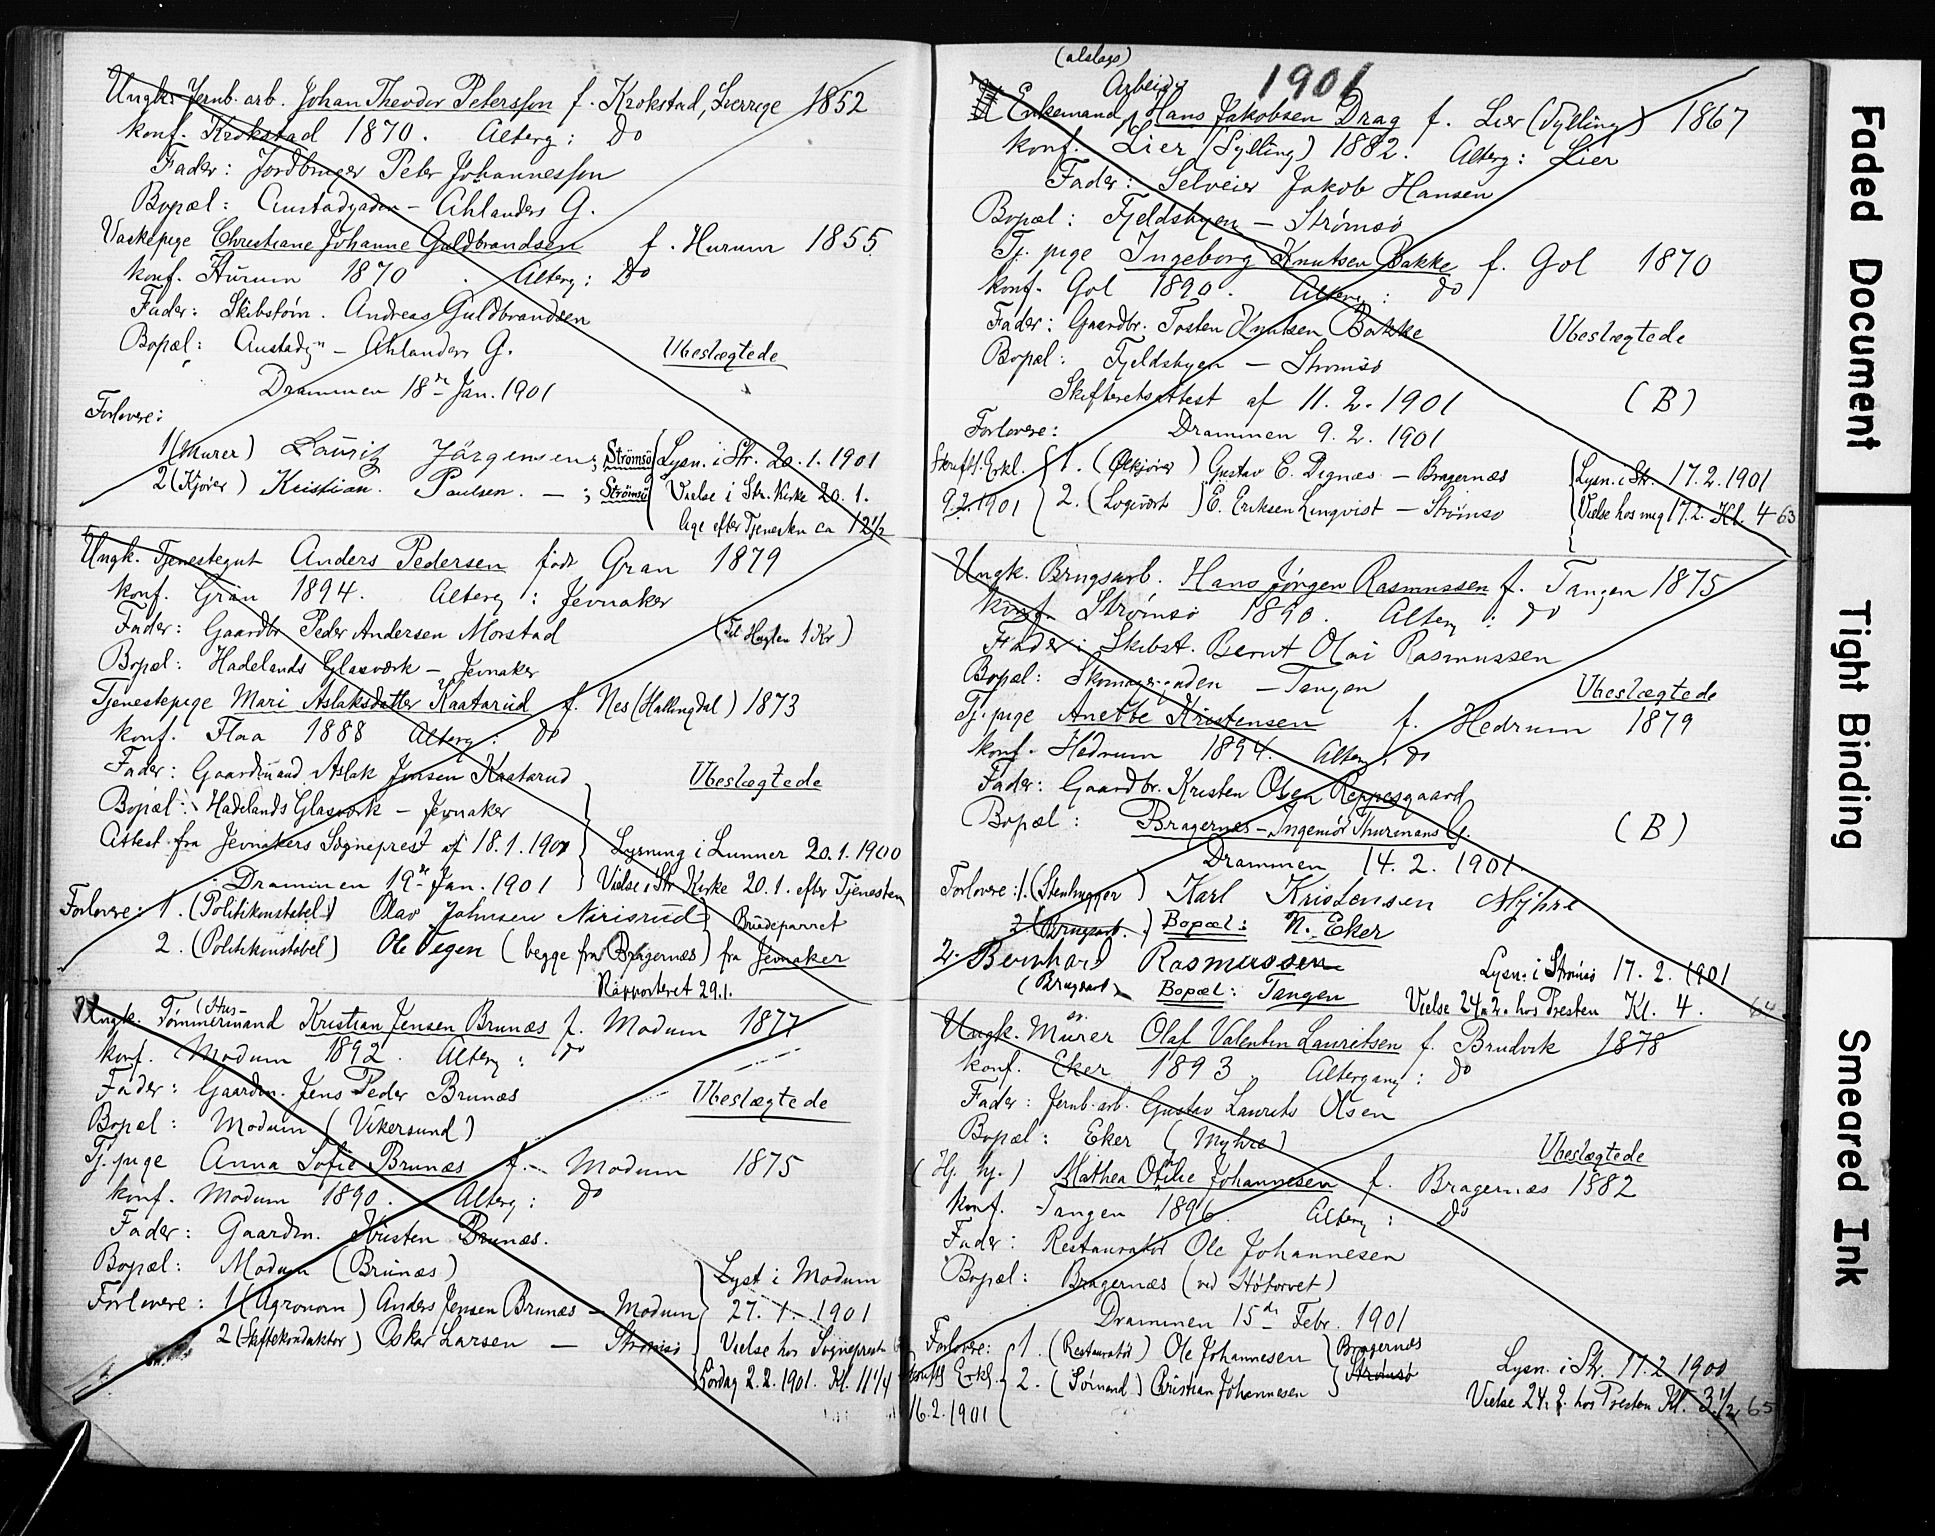 Ungk. Jernb. arb. Johan Theodor Petersson f. Krokstad, Sverrige 1852
konf. Krokstad 1870. Alterg: Do
Fader: Jordbruger Peter Johannesson
Bopæl: Austadgaden - Ahlanders G.
Vaskepige Christiane Johanne Guldbrandsen f. Hurum 1855
konf. Hurum 1870. Alterg: Do
Fader: Skibstøm. Andreas Guldbrandsen
Bopæl: Austadgn - Ahlanders G. Ubeslægtede
Drammen 18de Jan. 1901
Forlovere:
1 (Murer) Lauritz Jörgensen; Strömsö Lysn. i Str. 20.1.1901
2 (Kjører) Kristian Paulsen. - ; Strömsö Vielse i Str. Kirke 20.1.
lige efter Tjenesten ca 12 1/2
Ungk. Tjenestegut Anders Pedersen født Gran 1879
konf. Gran 1894. Alterg: Jevnaker
Fader: Gaardbr Peder Andersen Morstad (Til 1 Kr)
Bopæl: Hadelands Glasværk - Jevnaker
Tjenestepige Mari Aslaksdatter Kaatarud f. Nes (Hallingdal) 1873
konf. Flaa 1888 Alterg: do
Fader: Gaardmand Aslak Jensen Kaatarud Ubeslægtede
Bopæl: Hadelands Glasværk - Jevnaker
Attest fra Jevnakers Sogneprest af 18.1.1901 Lysning i Lunner 20.1.1900
Drammen 19de Jan. 1901 Vielse i Str Kirke 20.1. efter Tjenesten
Forlovere: 1. (Politikonstabel) Olav Johnsen Nirisrud Brudeparret
2. (Politikonstabel) Ole Tegen (begge fra Bragernæs) fra Jevnaker
Rapporteret 29.1.
(Hus-
Ungk. Tømmermand Kristian Jensen Brunæs f. Modum 1877
konf. Modum 1892. Alterg: do
Fader: Gaardm. Jens Peder Brunæs Ubeslægtede
Bopæl: Modum (Vikersund)
Tj. pige Anna Sofie Brunæs f. - Modum 1875
konf. Modum 1890. Alterg: do
Fader: Gaardm. Kristen Brunæs.
Bopæl: Modum (Brunæs) Lyst i Modum
Forlovere: 1 (Agronom) Anders Jensen Brunæs - Modum 27.1.1901
2 (Skiftekonduktør) Oskar Larsen - Strømsø Vielse hos Sognepresten
Lördag 2.2.1901. Kl. 11 1/4
(afslags)
Arbeider 1901
Enkemand Hans Jakobsen Drag f. Lier (Sylling) 1867
konf. Lier (Sylling) 1882. Alterg: Lier
Fader: Selveier Jakob Hansen
Bopæl: Fjeldsbyen - Strømsø
Tj. pige Ingeborg Knutsen Bakke f. Gol 1870
konf. Gol 1890. Alterg: do
Fader: Gaardbr. Tosten Knutsen Bakke Ubeslægtede
Bopæl: Fjeldsbyen - Strømsø
Skifteretsattest af 11.2.1901 (B)
Forlovere: Drammen 9.2.1901
Skriftl. Erkl. 1. (Ølkjører) Gustav C. Dignæs - Bragernæs Lysn. i Str. 17.2.1901
9.2.1901 2. (Logivært) E. Eriksen Lunqvist - Strømsø Vielse hos mig 17.2. Kl. 4 63
Ungk. Brugsarb. Hans Jørgen Rasmussen f. Tangen 1875
konf. Strømsø 1890. Alterg: do
Fader: Skibst. Bernt Olai Rasmussen
Bopæl: Skomagergaden - Tangen Ubeslægtede
Tj. pige Anette Kristensen f. Hedrum 1879
konf. Hedrum 1894. Alterg: do
Fader: Gaardbr. Kristen Olsen Reppesgaard
Bopæl: Bragernæs - Ingeniør Thurmans G. (B)
Drammen 14.2.1901.
Forlovere: 1. (Stenhugger) Karl Kristensen Myhre
2. (Brugsarb.) Bopæl: N. Eker
2. Bernhard Rasmussen Lysn. i Strømsø 17.2.1901
(Brugsarb) Bopæl: Tangen Vielse 24.2. hos Presten Kl. 4. 64
Ungk. Murersv. Olaf Valentin Lauritsen f. Brudvik 1878
konf. Eker 1893. Altergang: do
Fader: Jernb. arb. Gustav Laurits Olsen
Bopæl: Eker (Myhre) Ubeslægtede
(Hj. hj.) Mathea Otilie Johannesen f. Bragernæs 1882
konf. Tangen 1896. Alterg: do
Fader: Restauratør Ole Johannesen
Bopæl: Bragernæs (ved Høtorvet)
Drammen 15de Febr. 1901
Forlovere: 1. (Restauratør) Ole Johannesen Bragernæs
Skriftl Erkl. 2. (Sømand) Cristian Johannesen Strømsø Lysn. i Str. 17.2.1901
16.2.1901 Vielse 24.2. hos Presten Kl. 3 1/2 65
Faded Document
Tight Binding
Smeared Ink